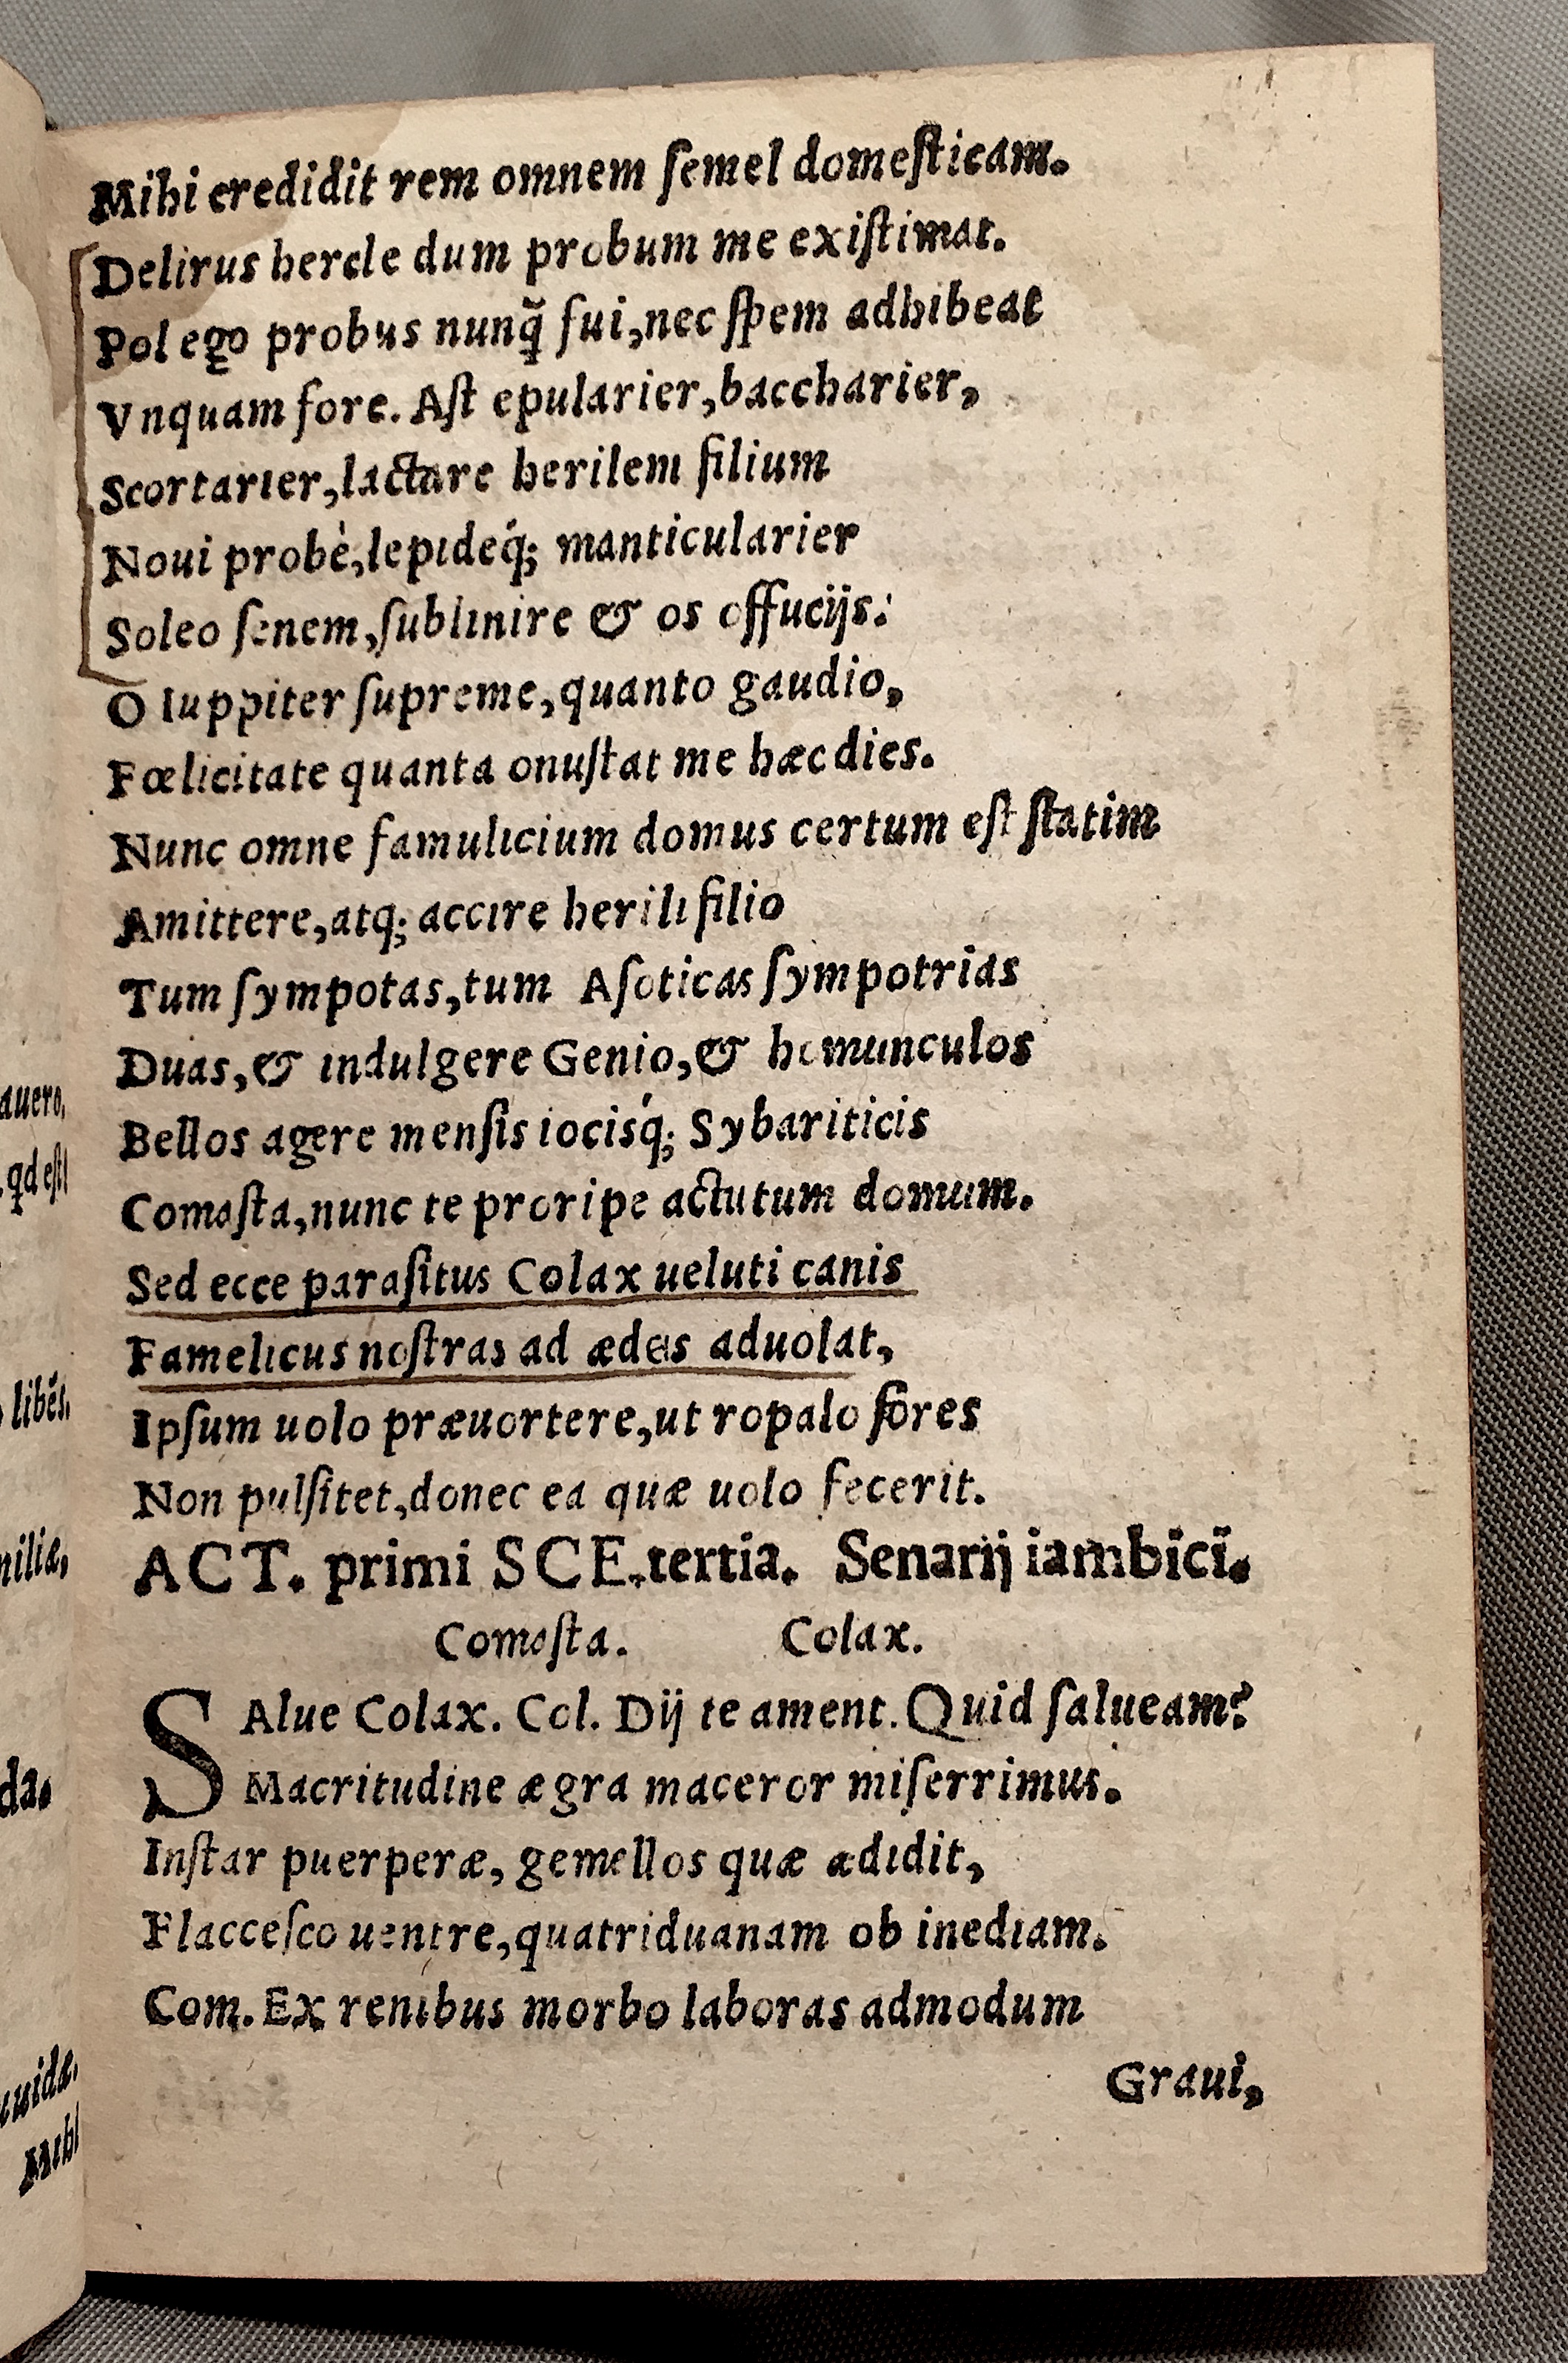 Mihi credidit rem omnem ſemel domeſticam.
Delirus hercle dum probum me exiſtimat.
Pol ego probus nunq̃ fui, nec ſpem adhibeat
Vnquam fore. Aſt epularier, baccharier,
Scortarier, lactare herilem filium
Noui probè, lepideq́; manticularier
Soleo ſenem, ſublinire & os offucijs:
O Iuppiter ſupreme, quanto gaudio,
Fœlicitate quanta onuſtat me hæc dies.
Nunc omne famulicium domus certum eſt ſtatim
Amittere, atq; accire herili filio
Tum ſympotas, tum Aſoticas ſympotrias
Duas, & indulgere Genio, & homunculos
Bellos agere menſis iociſq́; Sybariticis
Comaſta, nunc te proripe actutum domum.
Sed ecce paraſitus Colax ueluti canis
Famelicus noſtras ad ædeis aduolat,
Ipſum uolo præuortere, ut ropalo fores
Non pulſitet, donec ea quæ uolo fecerit.
ACT. primi SCE. tertia. Senarij iambici.
Comaſta. Colax.
SAlue Colax. Col. Dij te ament. Quid ſalueam?
Macritudine ægra maceror miſerrimus.
Inſtar puerperæ, gemellos quæ ædidit,
Flacceſco uentre, quatriduanam ob inediam.
Com. Ex renibus morbo laboras admodum
Graui,
auero,
qd eſt
libẽs,
miliæ,
da.
uidæ.
Mihi